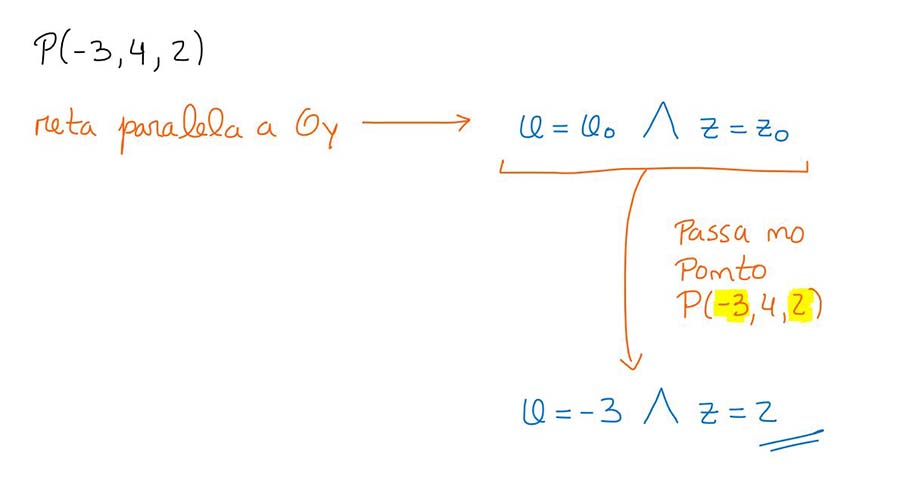 P(-3, 4, 2)
reta paralela a Oy → x = x₀ ∧ z = z₀
Passa no
Ponto
P(-3, 4, 2)
x = -3 ∧ z = 2